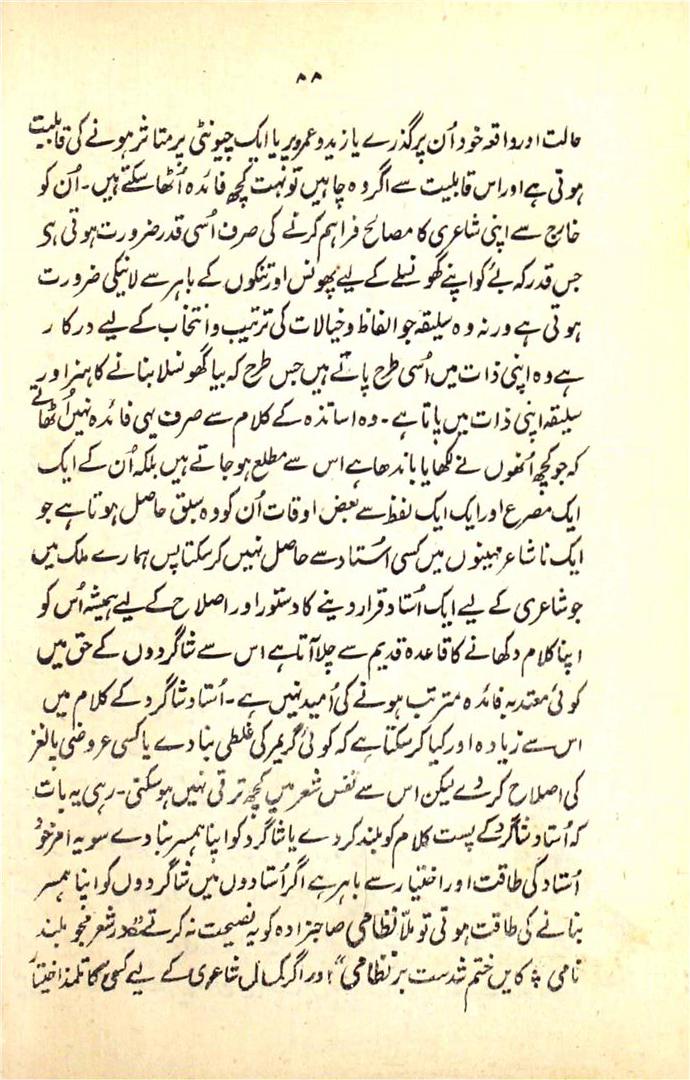 ۸۸
حالت اور واقعہ خود اُن پر گذرے یا زید و عمرو پر یا ایک چیونٹی پر متاثر ہونے کی قابلیت
ہوتی ہے اور اس قابلیت سے اگر وہ چاہیں تو بہت کچھ فائدہ اُٹھا سکتے ہیں۔ اُن کو
خارج سے اپنی شاعری کا مصالح فراہم کرنے کی صرف اُسی قدر ضرورت ہوتی ہی
جس قدر کہ بئے کو اپنے گھونسلے کے لیے پھونس اور تنکوں کے باہر سے لانیکی ضرورت
ہوتی ہے ورنہ وہ سلیقہ جو الفاظ و خیالات کی ترتیب و انتخاب کے لیے درکار
ہے وہ اپنی ذات میں اُسی طرح پاتے ہیں جس طرح کہ بیا گھونسلا بنانے کا ہنر اور
سلیقہ اپنی ذات میں پاتا ہے۔ وہ اساتذہ کے کلام سے صرف یہی فائدہ نہیں اُٹھاتے
کہ جو کچھ اُنھوں نے لکھا یا باندھا ہے اس سے مطلع ہو جاتے ہیں بلکہ اُن کے ایک
ایک مصرع اور ایک ایک لفظ سے بعض اوقات اُن کو وہ سبق حاصل ہوتا ہے جو
ایک نا شاعر مہینوں میں کسی اُستاد سے حاصل نہیں کر سکتا پس ہمارے ملک میں
جو شاعری کے لیے ایک اُستاد قرار دینے کا دستور اور اصلاح کے لیے ہمیشہ اُس کو
اپنا کلام دکھانے کا قاعدہ قدیم سے چلا آتا ہے اس سے شاگردوں کے حق میں
کوئی معتدبہ فائدہ مترتب ہونے کی اُمید نہیں ہے۔ اُستاد شاگرد کے کلام میں
اس سے زیادہ اور کیا کر سکتا ہے کہ کوئی گریمر کی غلطی بتا دے یا کسی عروضی یا لغز
کی اصلاح کر دے لیکن اس سے نفس شعر میں کچھ ترقی نہیں ہو سکتی۔ رہی یہ بات
کہ اُستاد شاگرد کے پست کلام کو بلند کر دے یا شاگرد کو اپنا ہمسر بنا دے سو یہ امر خود
اُستاد کی طاقت اور اختیار سے باہر ہے اگر اُستادوں میں شاگردوں کو اپنا ہمسر
بنانے کی طاقت ہوتی تو ملّا نظامی صاحبزادہ کو یہ نصیحت نہ کرتے "در شعر مجو بلند
نامی ؎ کایں ختم شدست بر نظامی" اور اگر کمال شاعری کے لیے کسی کا تلمذ اختیار